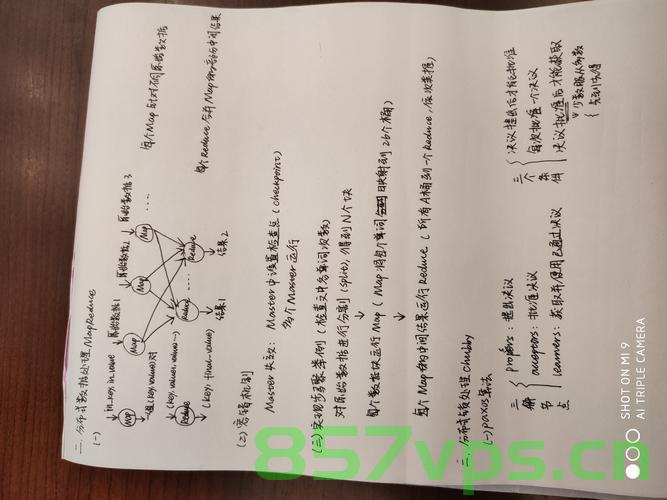 二、分布式数据处理 MapReduce
(一)
in_key, in_value
Map
一组(key, value)对
(key, value, value…)
Reduce
(key, final value)
原始数据1
原始数据2
原始数据3
Map
Map
Map
....
Reduce
Reduce
....
结果1
结果2
每个Map针对不同原始数据
每个Reduce合并Map的中间结果
(二)容错机制
Master失效：Master中设置检查点 (checkpoint)
多个Master运行
(三)实现步骤举例 (检查文中各单词次数)
对原始数据进行分割 (split), 得到N个块
每个数据块运行Map (Map将每个单词映射到26个桶)
每个Map的中间结果运行Reduce (所有A桶到一个Reduce, 依次类推)
三、分布式锁处理 chubby
(一) paxos算法
三个节点
proposers：提出决议
acceptors：批准决议
learners：获取并使用已通过决议
三个条件
决议提出后才能批准
每次批准一个决议
决议批准后才能获取
少数服从多数
857vps.cn
SHOT ON MI 9
AI TRIPLE CAMERA